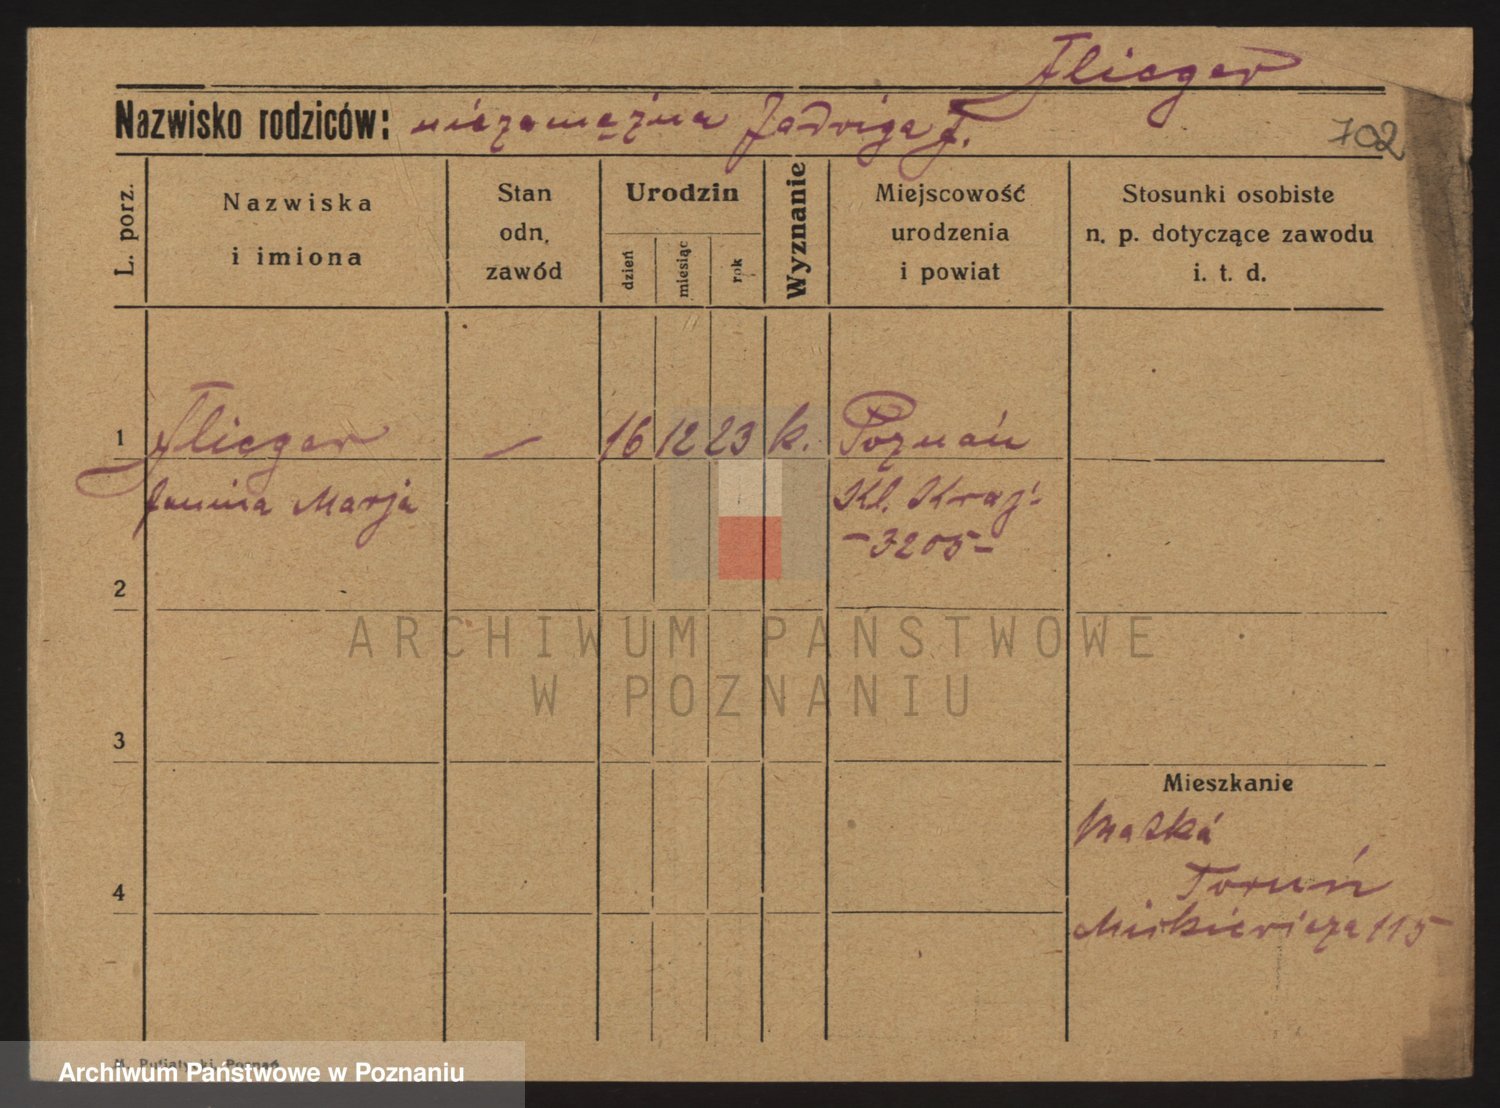 Flieger
Nazwisko rodziców: niezamężna Jadwiga F.
702
L. porz.
Nazwiska
i imiona
Stan
odn.
zawód
Urodzin
dzień
miesiąc
rok
Wyznanie
Miejscowość
urodzenia
i powiat
Stosunki osobiste
n. p. dotyczące zawodu
i. t. d.
1 Flieger — 16 12 23 k. Poznań
Janina Marja Kl. Kraj.
-3205-
2
3
4
ARCHIWUM PAŃSTWOWE
W POZNANIU
Mieszkanie
Matka
Toruń
Mickiewicza 115
Archiwum Państwowe w Poznaniu